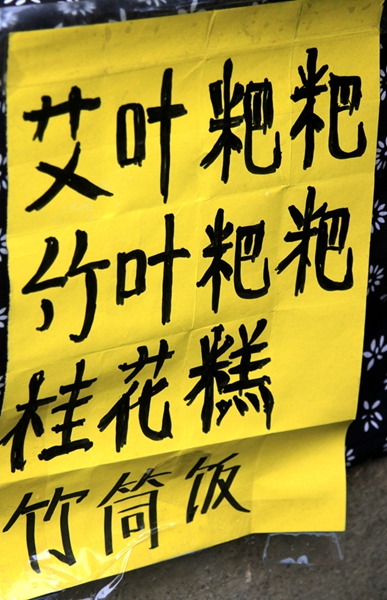 艾叶粑粑
竹叶粑粑
桂花糕
竹筒饭